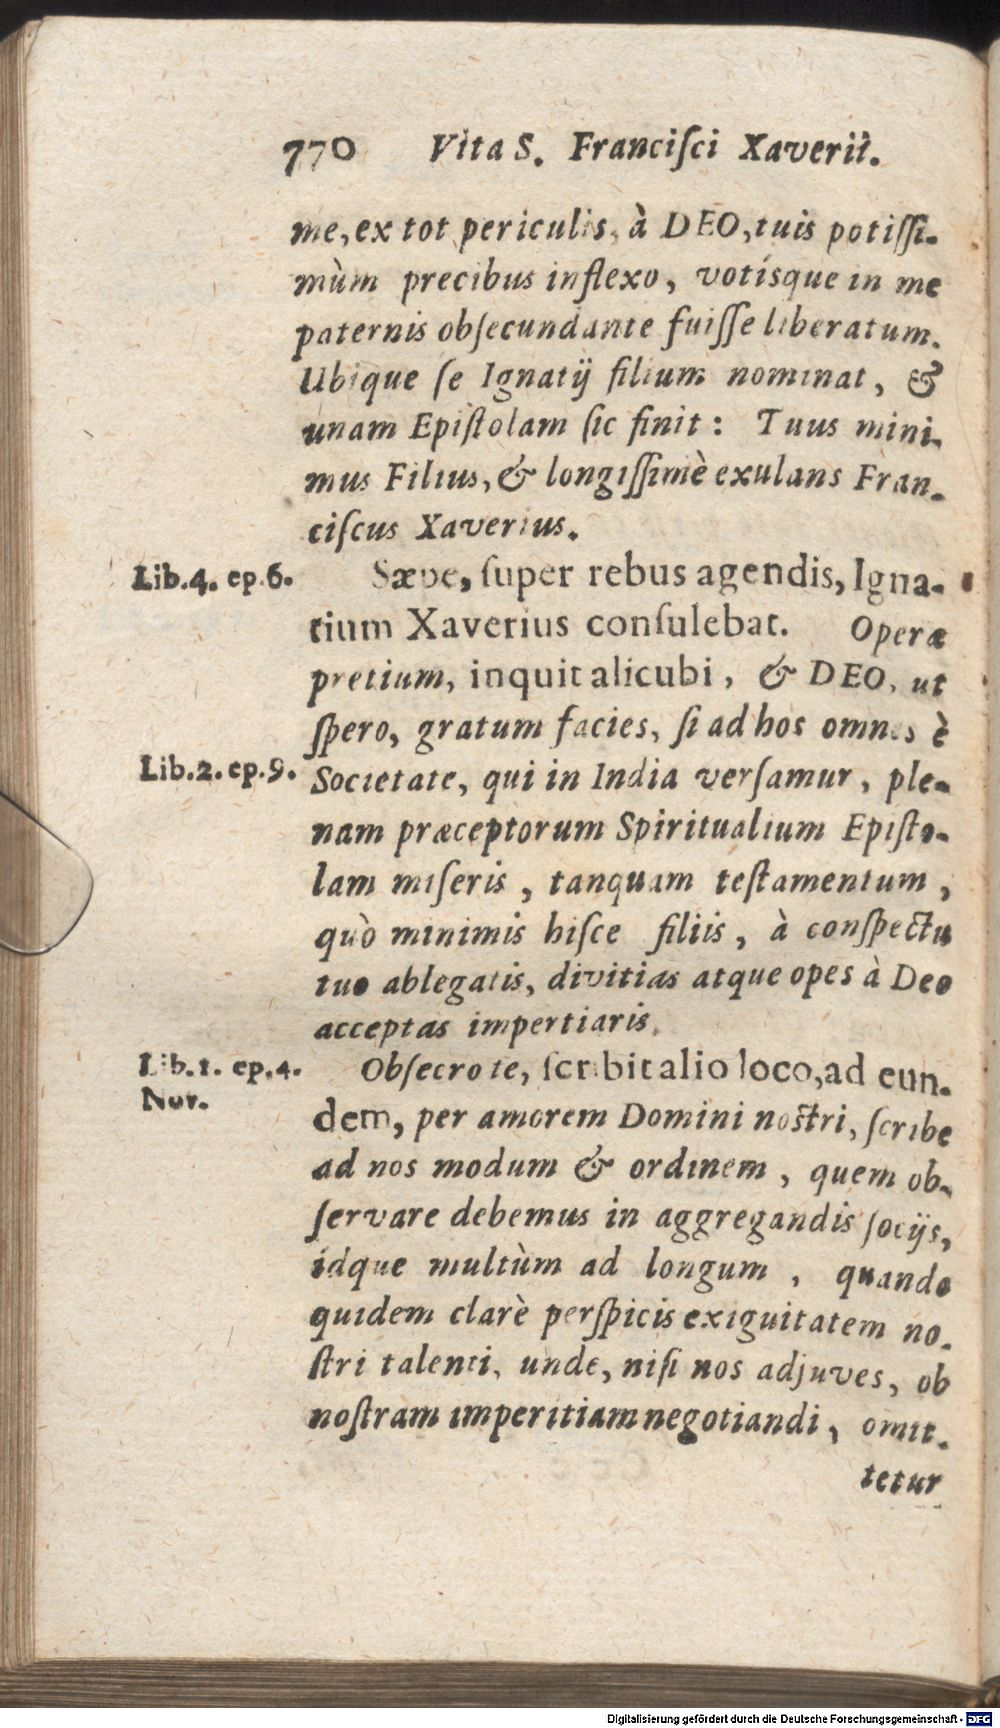 770 Vita S. Franciſci Xaverii.
me, ex tot periculis, à DEO, tuis potiſſi-
mùm precibus inflexo, votísque in me
paternis obſecundante fuiſſe liberatum.
Ubique ſe Ignatij filium nominat, &
unam Epiſtolam ſic finit: Tuus mini-
mus Filius, & longiſſimè exulans Fran-
ciſcus Xaverius.
Lib.4. ep.6. Sæpe, ſuper rebus agendis, Igna-
tium Xaverius conſulebat. Operæ
pretium, inquit alicubi, & DEO, ut
ſpero, gratum facies, ſi ad hos omnes è
Lib.2. ep.9. Societate, qui in India verſamur, ple-
nam præceptorum Spiritualium Epiſto-
lam miſeris, tanquam teſtamentum,
quò minimis hiſce filiis, à conſpectu
tuo ablegatis, divitias atque opes à Deo
acceptas impertiaris.
Lib.1. ep.4. Obſecro te, ſcribit alio loco, ad eun-
Nov. dem, per amorem Domini noſtri, ſcribe
ad nos modum & ordinem, quem ob-
ſervare debemus in aggregandis ſocijs,
idque multùm ad longum, quando
quidem clarè perſpicis exiguitatem no-
ſtri talenti, unde, niſi nos adjuves, ob
noſtram imperitiam negotiandi, omit-
tetur
Digitalisierung gefördert durch die Deutsche Forschungsgemeinschaft - DFG